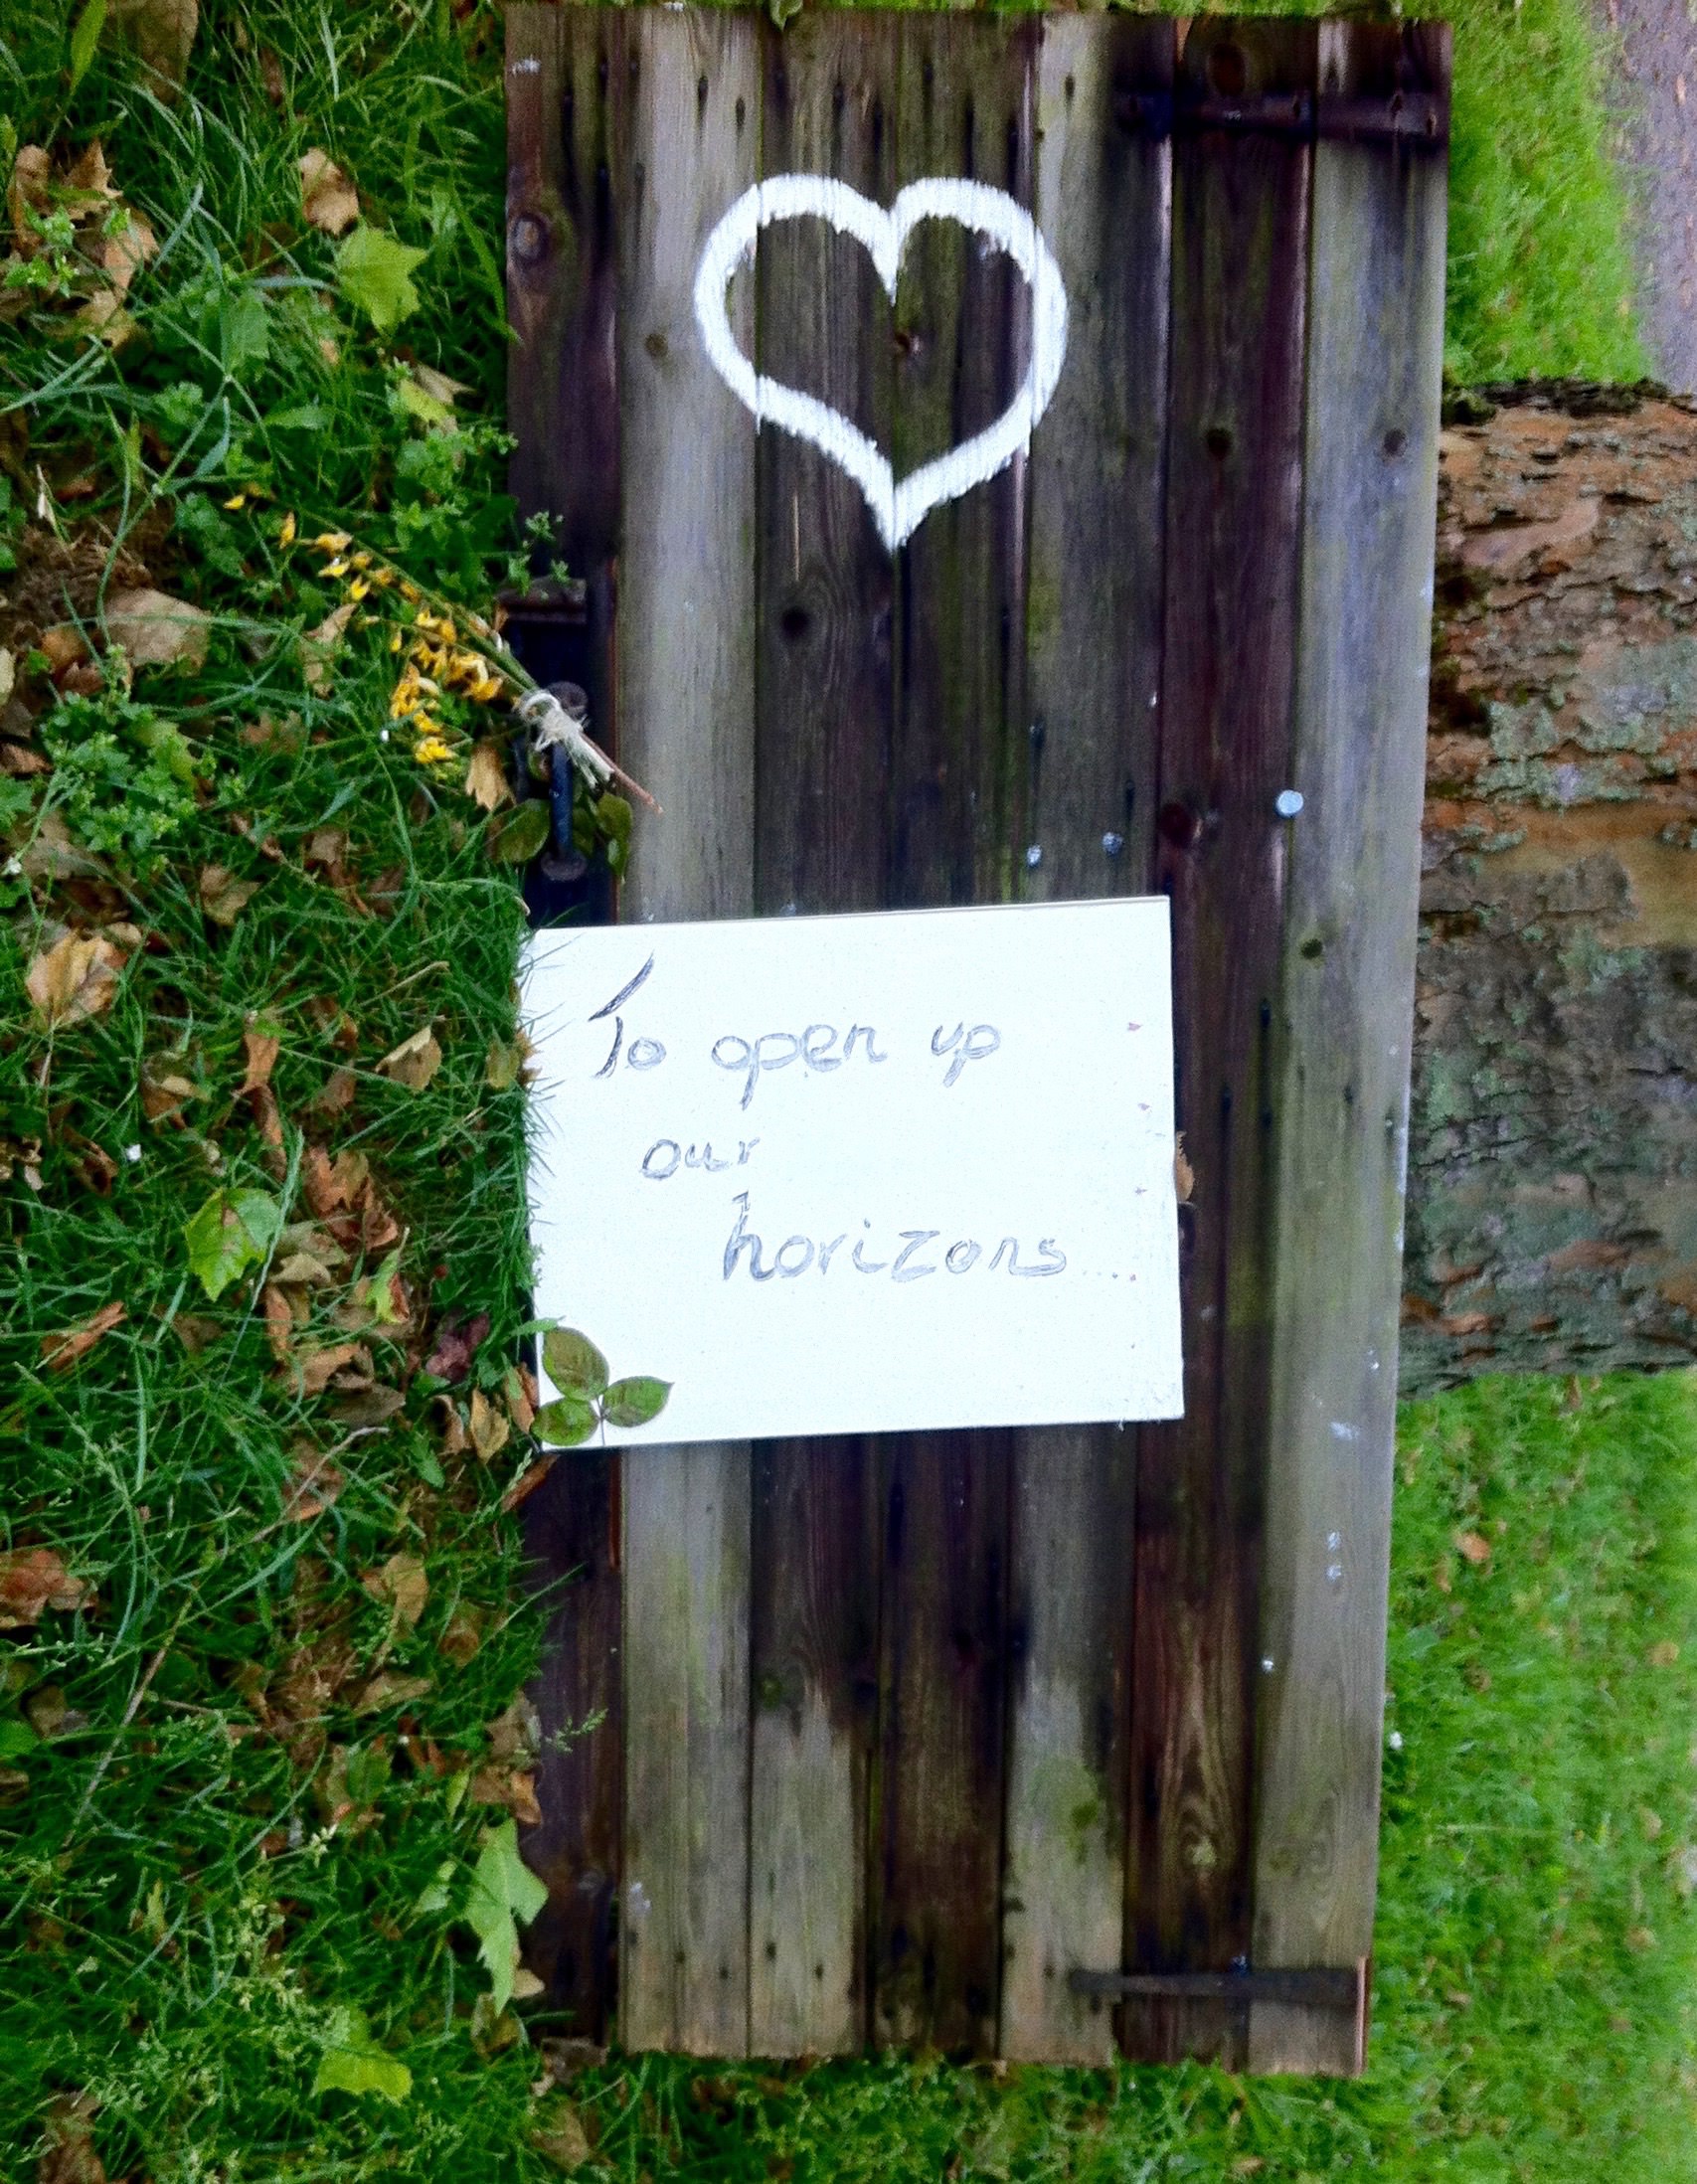 To open up
our
horizons...